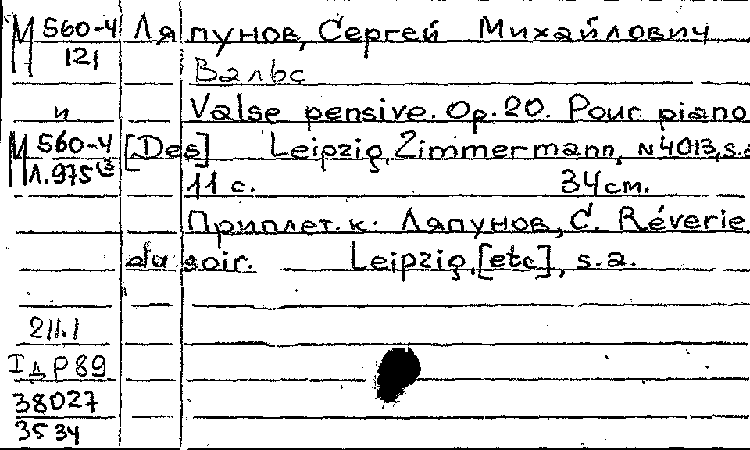 М 560-4 Ляпунов, Сергей Михайлович
121
Вальс
и Valse pensive. Op. 20. Pour piano
М 560-4 [Des] Leipzig, Zimmermann, N 4013, s.a
1.975
11 с. 34 см.
Приплет. к: Ляпунов, С. Réverie
du soir. Leipzig, [etc], s.a.
211.1
38027
3534